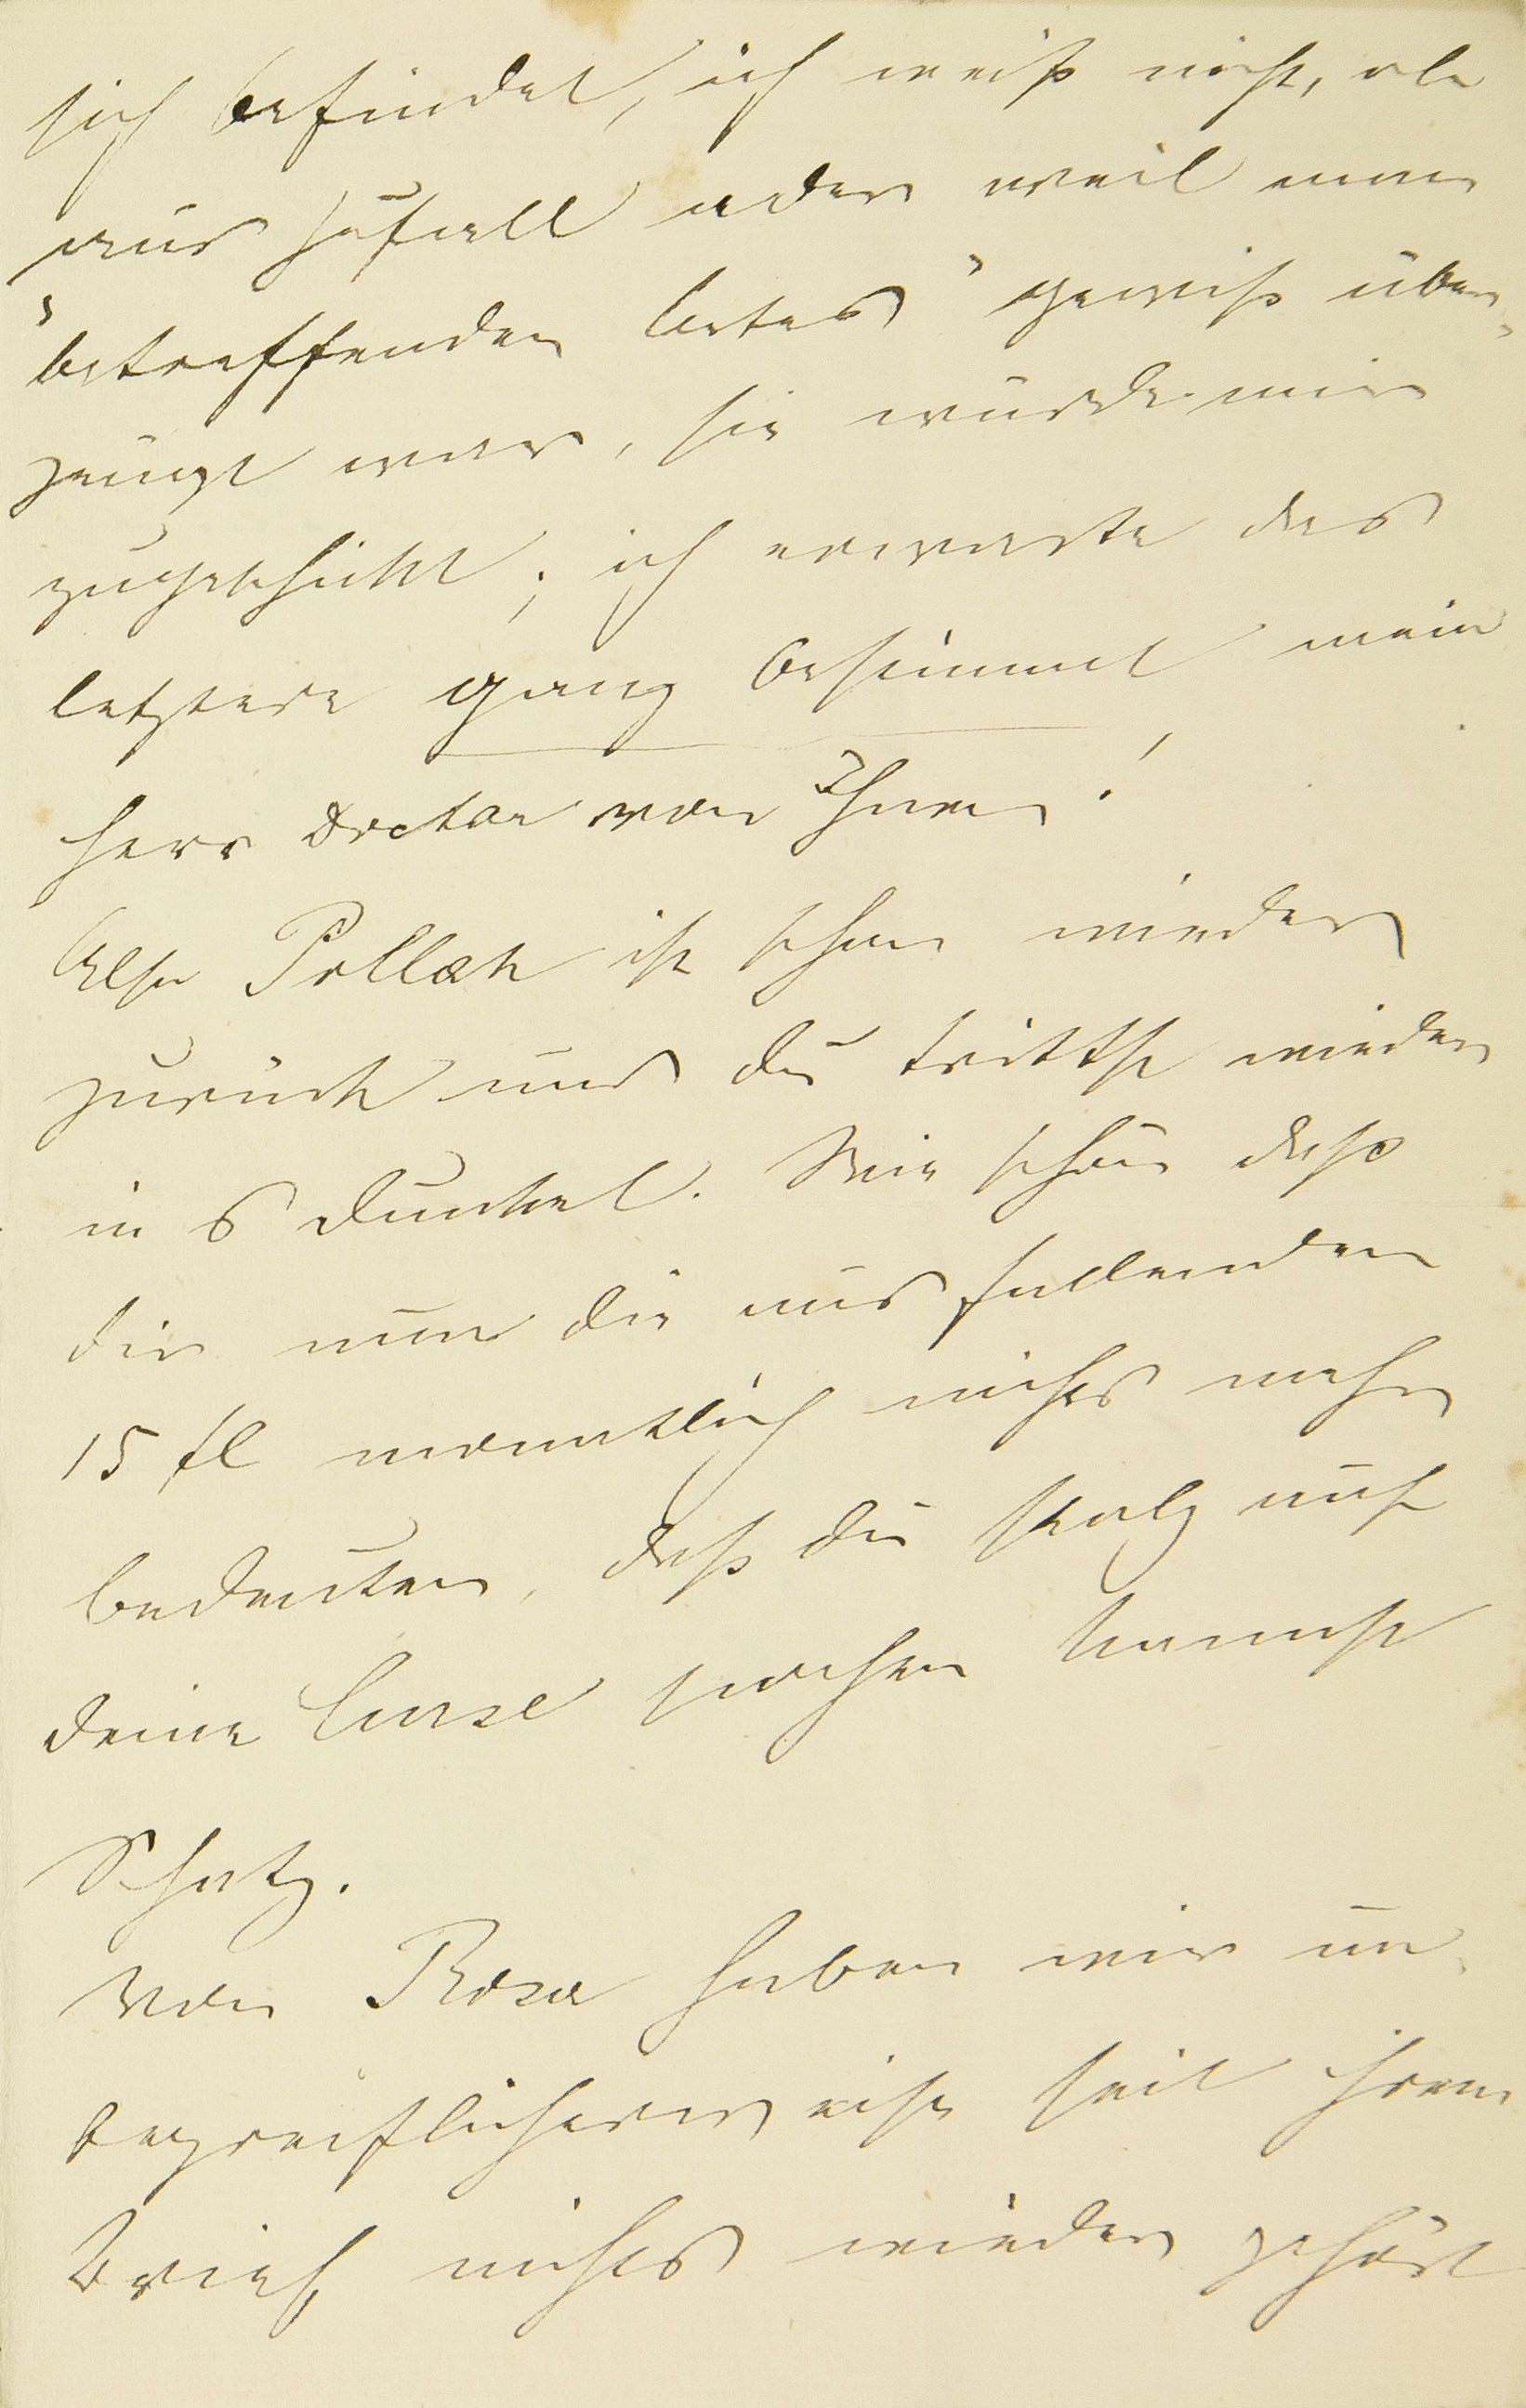 sich befindet, ich weiß nicht, ob
aus Zufall oder weil man
"betreffenden Ortes" gewiß über-
zeugt war, sie würde mir
zugeschickt; ich erwarte das
letztere ganz bestimmt mein
Herr Doctor von Ihnen!
Also Pollak ist schon wieder
zurück und du trittst wieder
in's Dunkel. Wie schön daß
dir nun die ausfallenden
15 fl monatlich nichts mehr
bedeuten, daß du stolz auf
deine Curse pochen kannst
Schatz.
Von Rosa haben wir un-
begreiflicherweise seit ihrem
Brief nichts wieder gehört